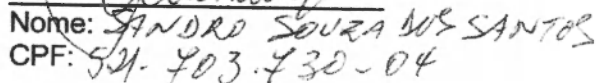 Nome: SANDRO SOUZA DOS SANTOS
CPF: 521.703.730-04